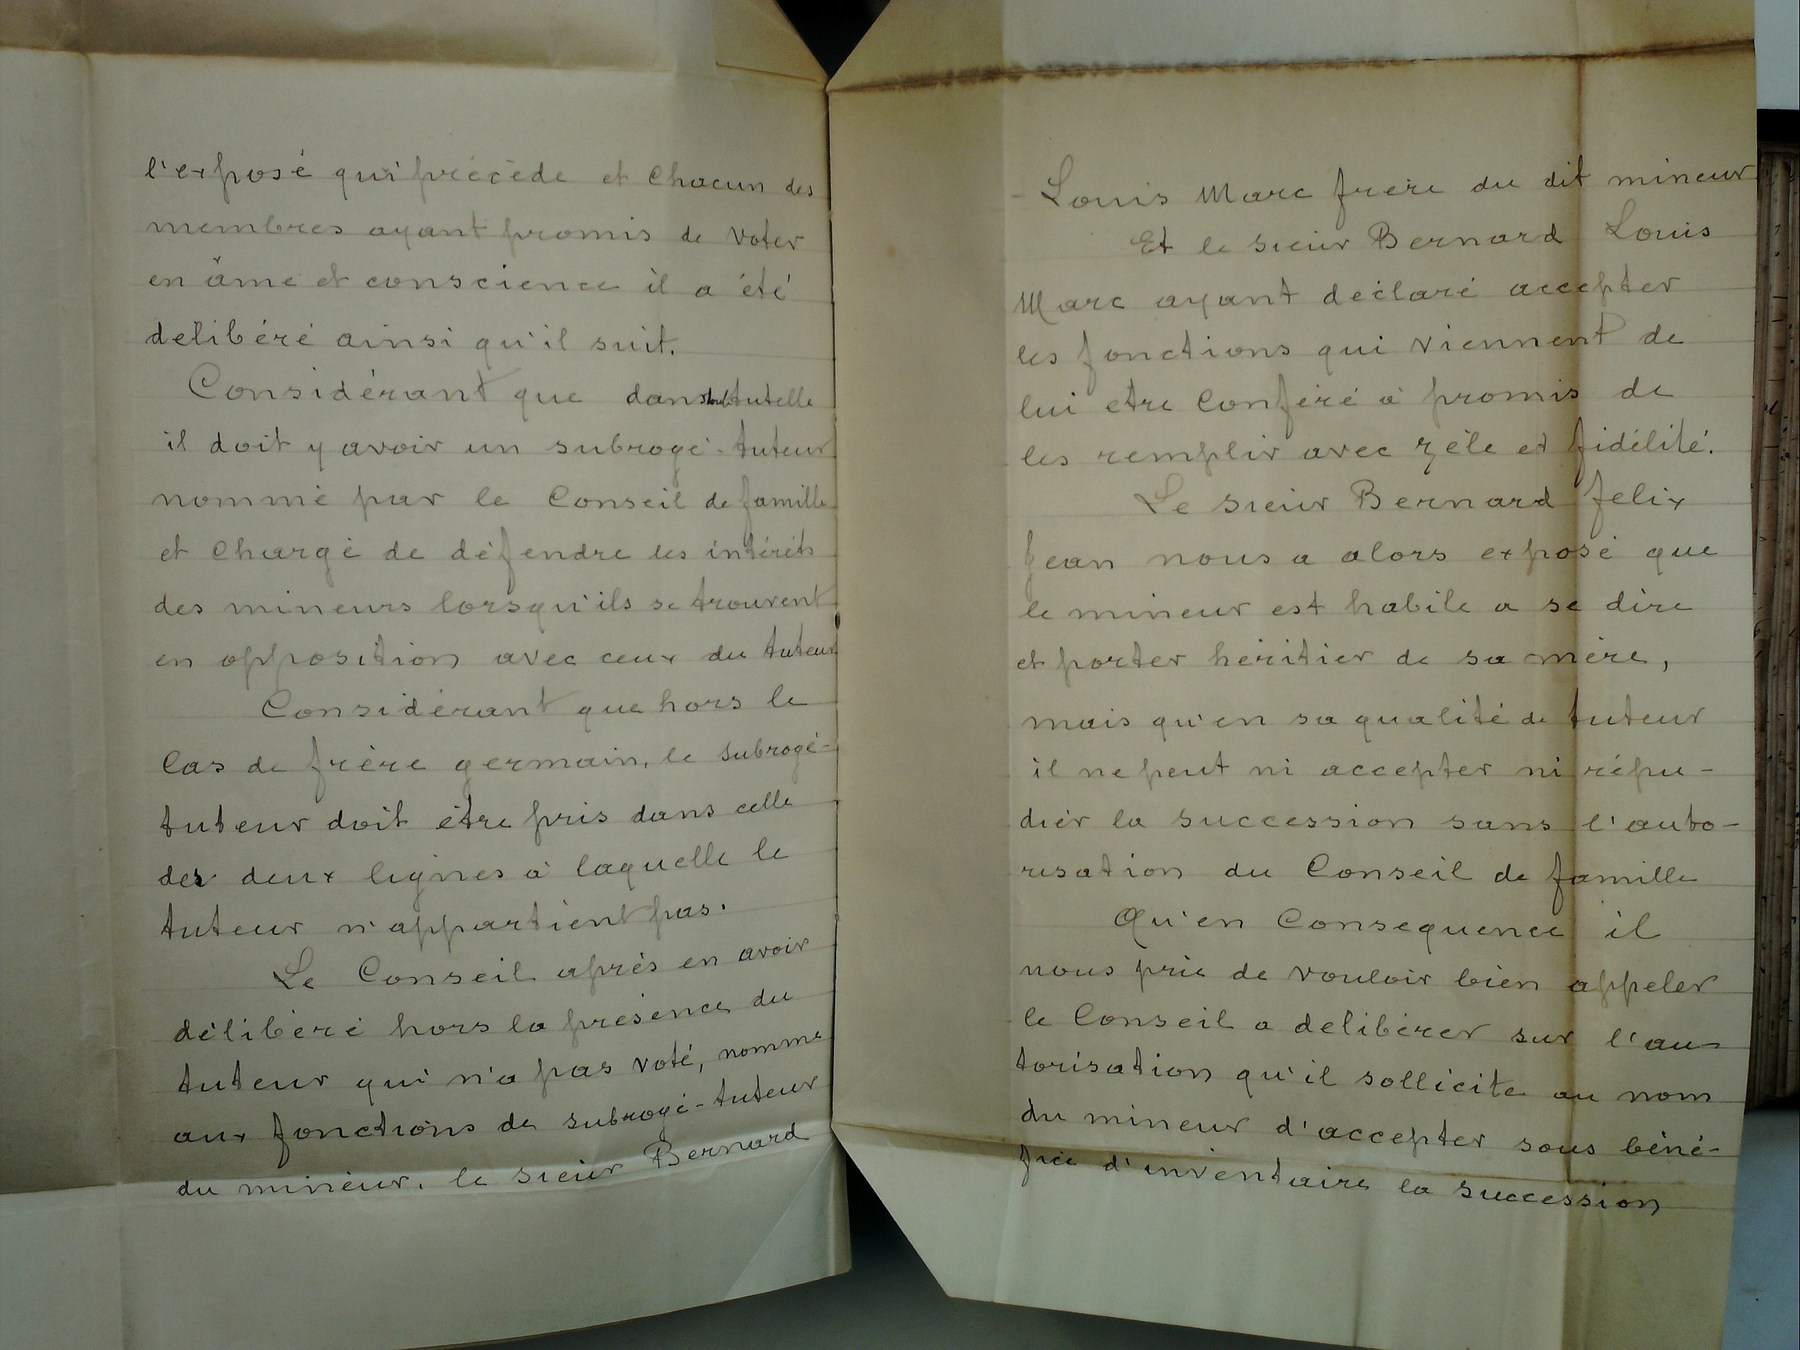 l'exposé qui précède et Chacun des
membres ayant promis de voter
en âme et conscience il a été
délibéré ainsi qu'il suit.
Considérant que dans toute tutelle
il doit y avoir un subrogé-tuteur
nommé par le Conseil de famille
et Chargé de défendre les intérêts
des mineurs lorsqu'ils se trouvent
en opposition avec ceux du tuteur
Considérant que hors le
Cas de frère germain, le subrogé-
tuteur doit être pris dans celle
des deux lignes à laquelle le
tuteur n'appartient pas.
Le Conseil après en avoir
délibéré hors la présence du
tuteur qui n'a pas voté, nomme
aux fonctions de subrogé-tuteur
du mineur, le sieur Bernard
- Louis Marc frère du dit mineur
Et le sieur Bernard Louis
Marc ayant déclaré accepter
les fonctions qui viennent de
lui etre Conféré à promis de
les remplir avec zèle et fidélité.
Le sieur Bernard felix
Jean nous a alors exposé que
le mineur est habile a se dire
et porter héritier de sa mère,
mais qu'en sa qualité de tuteur
il ne peut ni accepter ni répu-
dier la succession sans l'auto-
risation du Conseil de famille
Qu'en Consequence il
nous prie de vouloir bien appeler
le Conseil a delibérer sur l'au-
torisation qu'il sollicite au nom
du mineur d'accepter sous béné-
fice d'inventaire la succession